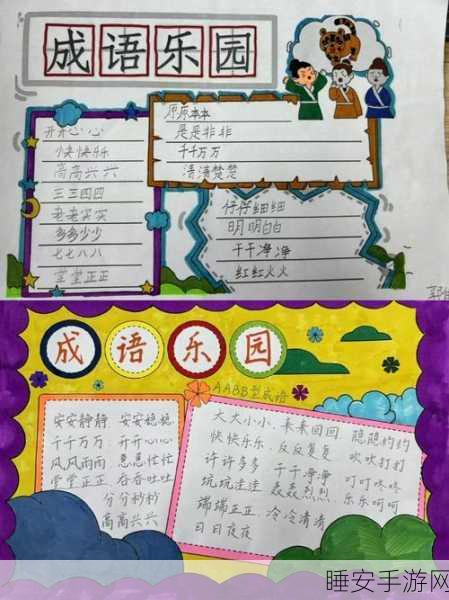 成语乐园
开开心心
快快乐乐
高高兴兴
三三四四
老老实实
多多少少
七七八八
堂堂正正
原原本本
是是非非
千千万万
清清楚楚
仔仔细细
明明白白
干干净净
红红火火
成语乐园
AABB型成语
安安静静 安安稳稳
千千万万 开开心心
风风雨雨 急急忙忙
堂堂正正 吞吞吐吐
分分秒秒
高高兴兴
大大小小、来来回回
快快乐乐、反反复复
许许多多 干干净净
坑坑洼洼 轰轰烈烈
端端正正、冷冷清清
日日夜夜
隐隐约约
吹吹打打
叮叮咚咚
乐乐呵呵
睡安手游网